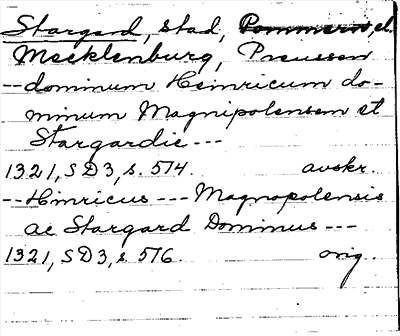 Stargard, stad, Pommern, el.
Mecklenburg, Preussen
-- dominum Heinricum do-
minum Magnipolensem et
Stargardie ---
1321, SD3, s. 574. avskr.
-- Hinricus --- Magnopolensis
ac Stargard Dominus ---
1321, SD3, s. 576. orig.